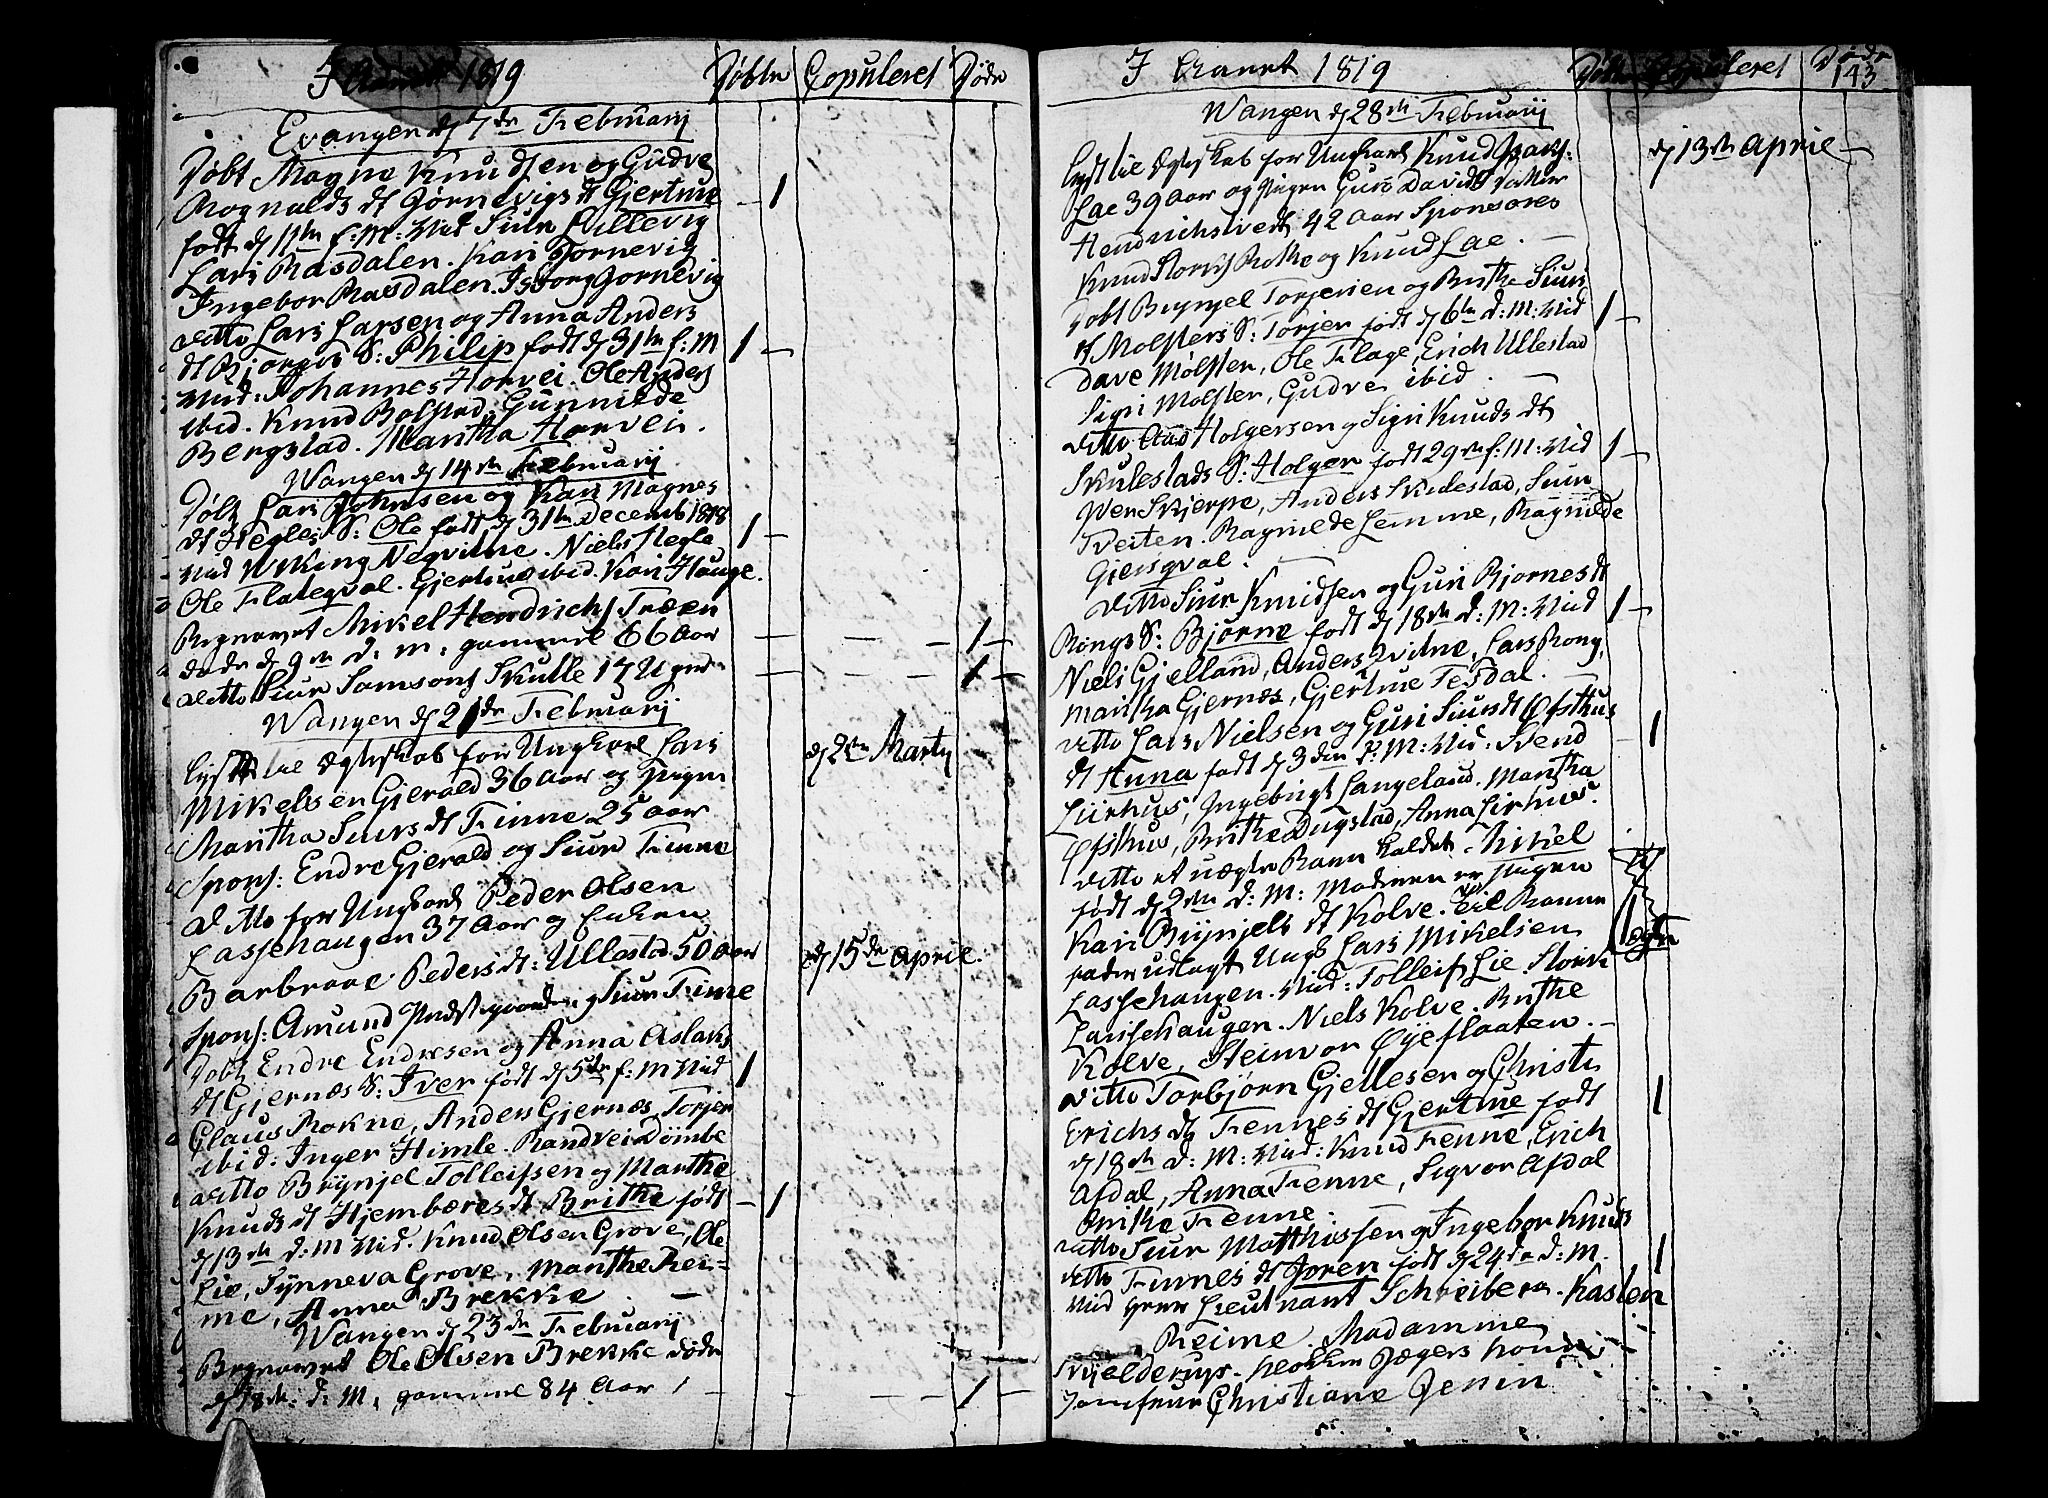 I Aaret 1819 Døbte Copuleret Døde
Evangen d 7de Februarij
Døbt Magne Knudsen og Gudve
Rognalds dt Gjørnevigs dt Gjertrue 1
født d 11te f: M: Vid Siur Lillevig
Lars Rasdalen. Kari Gjornevig
Ingebor Rasdalen. Isborg Gornevig
ditto Lars Larsen og Anna Anders
dt Bjorges S: Philip født d 31te f: M 1
Vid: Johannes Horvei. Ole Anders
ibid. Knud Bolstad, Gunnilde
Bergstad. Mantha Horvei.
Wangen d 14de Februarij
Døbt Lars Johnsen og Kari Magnes
dt Hegles S: Ole født d 31te Decemb 1818 1
Vid Wiking Nequitne. Niels Hegle
Ole Flateqval. Gjertrue ibid. Kari Hauge.
Begravet Mikel Hendrichs Træen
døde d 9de d: m: gammel 66 Aar 1
ditto Siur Samsons Skulle 17 Uger 1
Wangen d 21de Februarij
lyst til Ægteskab for Ungkarl Lars d 2den Martij
Mikelsen Gjerald 36 Aar og Pigen
Maritha Siurs dt Finne 25 aar
Spons: Endre Gjerald og Siur Finne
ditto for Ungkarl Peder Olsen
Lassehaugen 37 Aar og Enken
Barbraae Peders dt: Ullestad 50 aar d 15de Aprile
Spons: Amund Prestegaarden og Siur Finne
Døbt Endre Endresen og Anna Aslaks
dt Gjernæs S: Iver født d 5te f: M Vid 1
Claus Rokne, Anders Gjernæs, Torjer
ibid: Inger Himle. Randvei Dømbe
ditto Brynjel Tolleifsen og Marthe
Knuds dt Hjembæres dt Brithe født 1
d 13de d: M Vid. Knud Olsen Grove, Ole
Lie, Synneva Grove, Marthe Rei=
me, Anna Brekke.
Wangen d 23de Februarij
Begravet Ole Olsen Brekke døde
d 18de d: M, gammel 84 Aar 1
I Aaret 1819 Døbte Copuleret Døde
143
Wangen d 28de Februarij
lyst til Ægteskab for Ungkarl Knud d 13de Aprile
Lae 39 Aar og Pigen Guro Davids datter
Hendrichstvedt 42 Aar Sponsores
Knud Rothe og Knud Lae.
Døbt Brynjel Torjersen og Brithe Siurs
dt Mølsters S: Torjer født d 6te d: M: Vid 1
Dave Mølster, Ole Flage, Erich Ullestad
Sigri Mølster, Gudve ibid.
ditto Aad Holgersen og Sigri Knuds dt
Skulestads S: Holger født 29de f: M: Vid 1
Wer Skjerpe, Anders Skulestad, Siur
Tveiten. Ragnilde Lemme, Ragnilde
Gjersqval.
ditto Siur Knudsen og Guri Bjornes dt
Rongs S: Bjørne født d 18de d: M: Vid 1
Niels Gjelland, Anders Qvitne, Lars Rong,
Maritha Gjernæs, Gjertrue Tesdal.
ditto Lars Nielsen og Guri Siurs dt Øfsthus 1
dt Anna født d 3die d: M: Vid: Svend
Liirhus, Ingebrigt Langeland. Mantha
Øfsthus, Brithe Dugstad, Anna Lirhus.
ditto et uægte Barn kaldet Mikel
født d 2den d: M: Moderen er Pigen
Kari Brynjels dt Kolve. Til Barne 1
fader udlagt Ungk Lars Mikelsen ægte
Lassehaugen. Vid: Tolleif Lie. Storck
Larssehaugen. Niels Kolve. Brithe
Kolve, Steinvor Øyeflaaten.
ditto Torbjørn Gjellesen og Christi
Erichs dt Fennes dt Gjertrue født 1
d 18de d: M: Vid: Knud Fenne, Erich
Afdal, Anna Fenne, Sigvor Afdal
Brithe Fenne.
ditto Siur Matthissen og Ingebor Knuds
ditto Finnes dt Joren født d 24de d: M. 1
Vid Herr Lieutnant Schreiber. Kasten
Reime. Madamme
Skjelderup. Jægers
Jomfrue Christiane Jersin